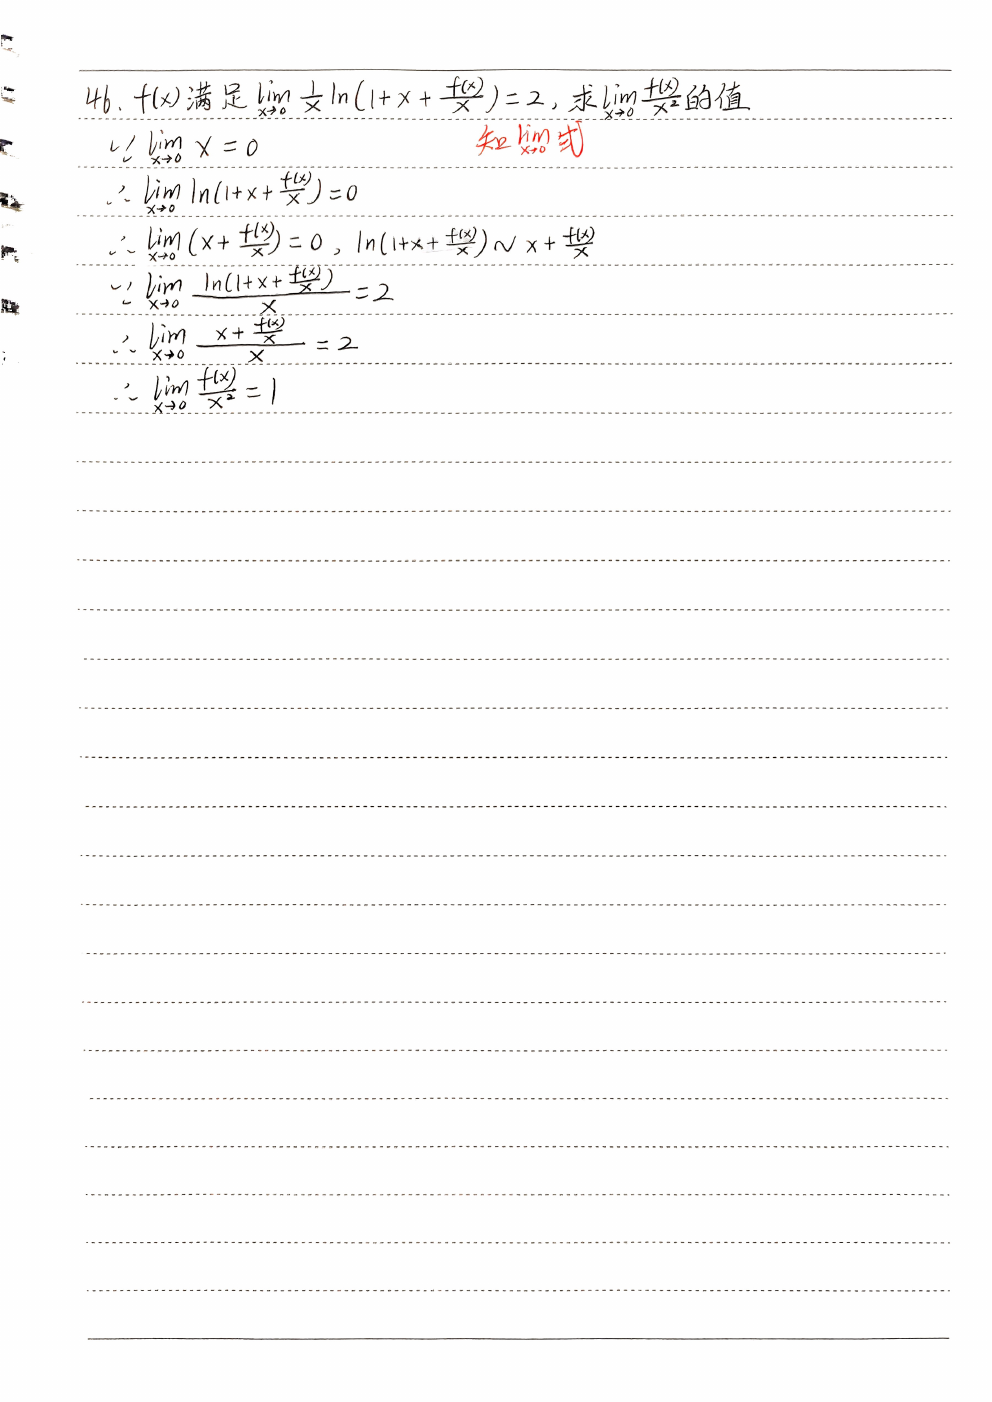 46. f(x)满足 lim_{x→0} \frac{1}{x} ln(1+x+\frac{f(x)}{x})=2, 求 lim_{x→0} \frac{f(x)}{x^2} 的值
知 lim_{x→0} 式
∵ lim_{x→0} x = 0
∴ lim_{x→0} ln(1+x+\frac{f(x)}{x})=0
∴ lim_{x→0} (x+\frac{f(x)}{x})=0, ln(1+x+\frac{f(x)}{x}) ~ x+\frac{f(x)}{x}
∵ lim_{x→0} \frac{ln(1+x+\frac{f(x)}{x})}{x}=2
∴ lim_{x→0} \frac{x+\frac{f(x)}{x}}{x}=2
∴ lim_{x→0} \frac{f(x)}{x^2}=1